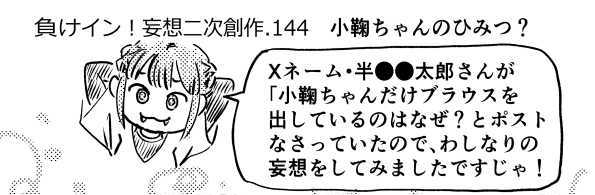 負けイン！妄想二次創作.144　小鞠ちゃんのひみつ？
Xネーム・半●●太郎さんが
「小鞠ちゃんだけブラウスを
出しているのはなぜ？とポスト
なさっていたので、わしなりの
妄想をしてみましたですじゃ！